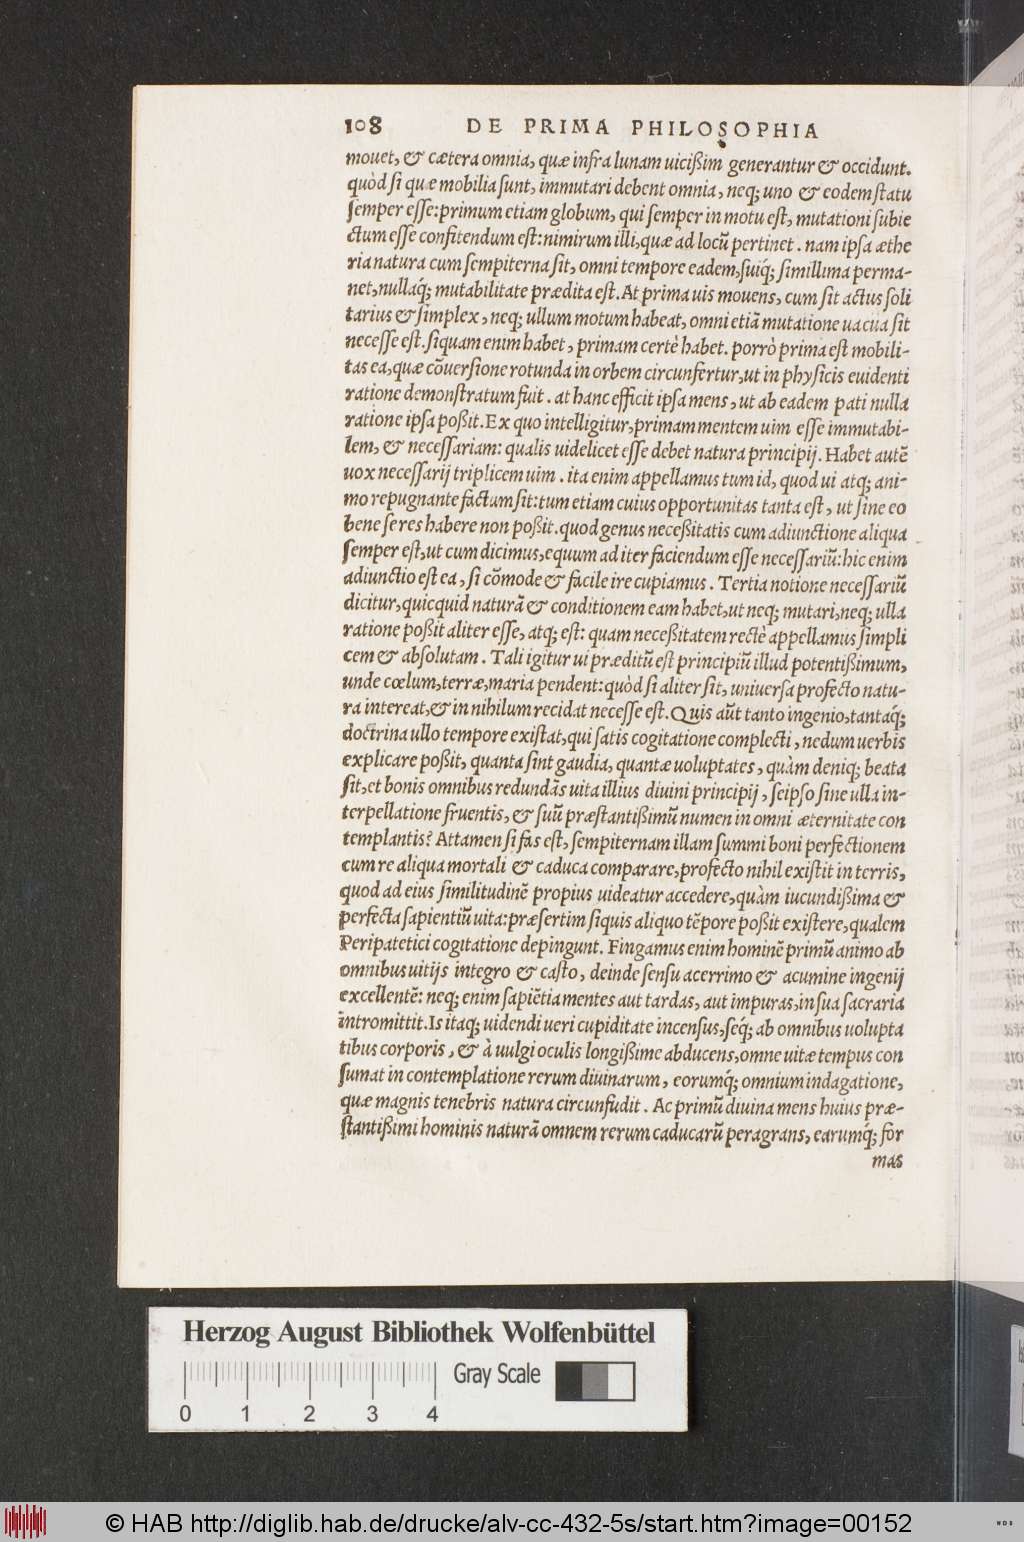 108 DE PRIMA PHILOSOPHIA
mouet, & cætera omnia, quæ infra lunam uicißim generantur & occidunt.
quòd si quæ mobilia sunt, immutari debent omnia, neq; uno & eodem statu
semper esse: primum etiam globum, qui semper in motu est, mutationi subie
ctum esse confitendum est: nimirum illi, quæ ad locũ pertinet. nam ipsa æthe
ria natura cum sempiterna sit, omni tempore eadem, suiq́; simillima perma-
net, nullaq́; mutabilitate prædita est. At prima uis mouens, cum sit actus soli
tarius & simplex, neq; ullum motum habeat, omni etiã mutatione uacua sit
necesse est. si quam enim habet, primam certè habet. porrò prima est mobili-
tas ea, quæ cõuersione rotunda in orbem circunfertur, ut in physicis euidenti
ratione demonstratum fuit. at hanc efficit ipsa mens, ut ab eadem pati nulla
ratione ipsa poßit. Ex quo intelligitur, primam mentem uim esse immutabi-
lem, & necessariam: qualis uidelicet esse debet natura principij. Habet autẽ
uox necessarij triplicem uim. ita enim appellamus tum id, quod ui atq; ani-
mo repugnante factum sit: tum etiam cuius opportunitas tanta est, ut sine eo
bene se res habere non poßit. quod genus neceßitatis cum adiunctione aliqua
semper est, ut cum dicimus, equum ad iter faciendum esse necessariũ: hic enim
adiunctio est ea, si cõmode & facile ire cupiamus. Tertia notione necessariũ
dicitur, quicquid naturã & conditionem eam habet, ut neq; mutari, neq; ulla
ratione poßit aliter esse, atq; est: quam neceßitatem rectè appellamus simpli
cem & absolutam. Tali igitur ui præditũ est principiũ illud potentißimum,
unde cœlum, terræ, maria pendent: quòd si aliter sit, uniuersa profecto natu-
ra intereat, & in nihilum recidat necesse est. Quis aũt tanto ingenio, tantaq́;
doctrina ullo tempore existat, qui satis cogitatione complecti, nedum uerbis
explicare poßit, quanta sint gaudia, quantæ uoluptates, quàm deniq; beata
sit, et bonis omnibus redundãs uita illius diuini principij, seipso sine ulla in-
terpellatione fruentis, & suũ præstantißimũ numen in omni æternitate con
templantis? Attamen si fas est, sempiternam illam summi boni perfectionem
cum re aliqua mortali & caduca comparare, profecto nihil existit in terris,
quod ad eius similitudinẽ propius uideatur accedere, quàm iucundißima &
perfecta sapientiũ uita: præsertim siquis aliquo tẽpore poßit existere, qualem
Peripatetici cogitatione depingunt. Fingamus enim hominẽ primũ animo ab
omnibus uitijs integro & casto, deinde sensu acerrimo & acumine ingenij
excellentẽ: neq; enim sapiẽtia mentes aut tardas, aut impuras, in sua sacraria
intromittit. Is itaq; uidendi ueri cupiditate incensus, seq́; ab omnibus uolupta
tibus corporis, & à uulgi oculis longißime abducens, omne uitæ tempus con
sumat in contemplatione rerum diuinarum, eorumq́; omnium indagatione,
quæ magnis tenebris natura circunfudit. Ac primũ diuina mens huius præ-
stantißimi hominis naturã omnem rerum caducarũ peragrans, earumq́; for
mas
Herzog August Bibliothek Wolfenbüttel
Gray Scale
0 1 2 3 4
© HAB http://diglib.hab.de/drucke/alv-cc-432-5s/start.htm?image=00152